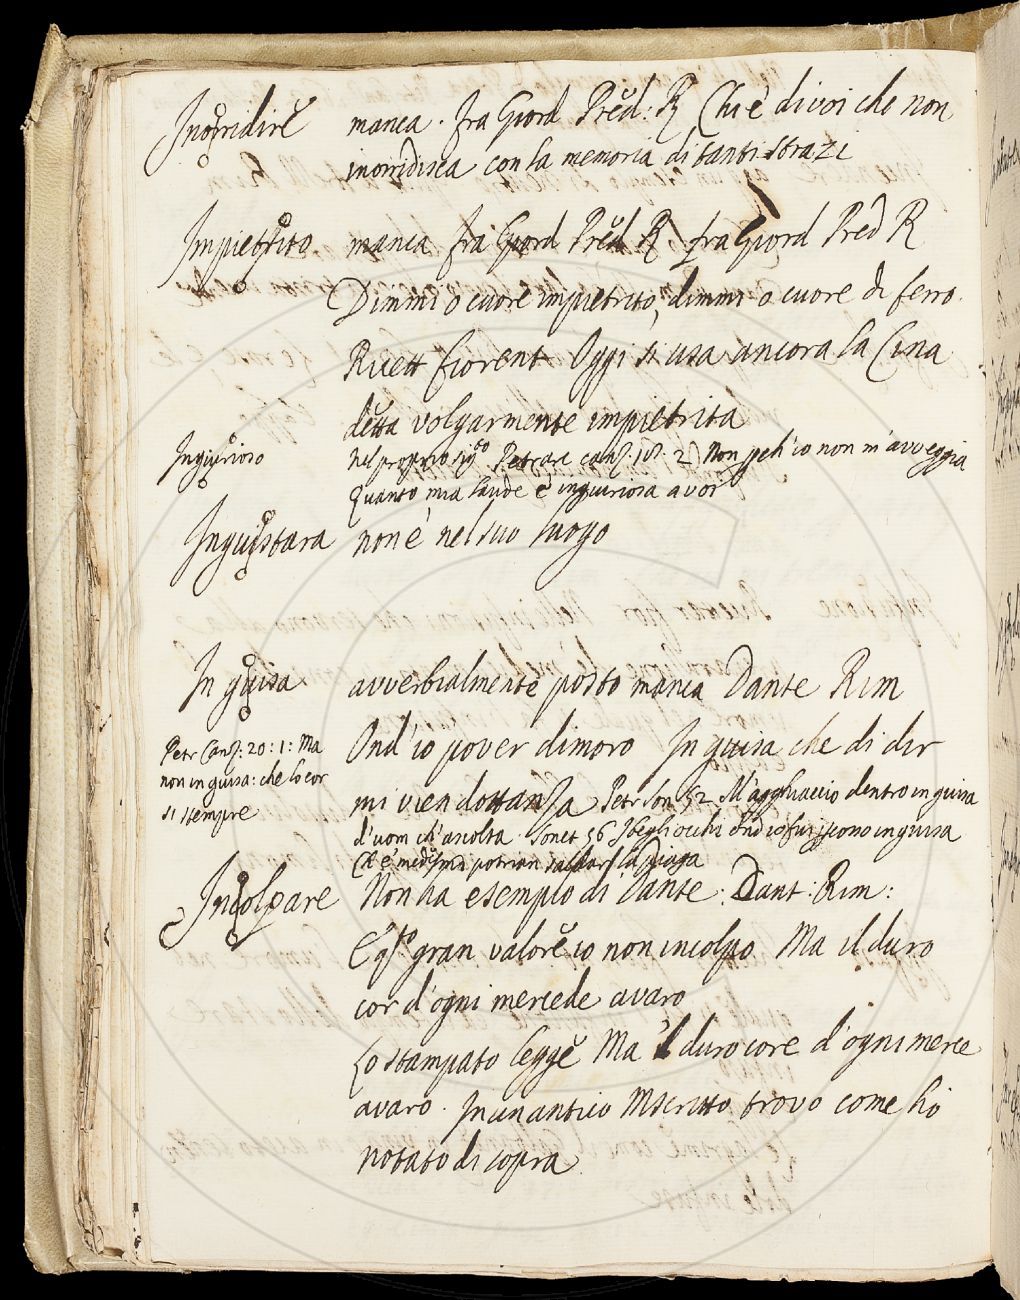 Inorridire manca. fra Giord Pred: R Chi è di voi che non
inorridisca con la memoria di tanti strazi
Impietrito manca fra Giord Pred R fra Giord Pred R
Dimmi o cuore impietrito, dimmi o cuore di ferro.
Ricett fiorent Oggi si usa ancora la Cina
detta volgarmente impietrita
Ingiurioso nel proprio sig.to Petrarc canz. 18. 2 Non perch'io non m'avveggia
Quanto mia laude è ingiuriosa a voi
Inguistara non è nel suo luogo
In guisa avverbialmente posto manca Dante Rim
Ond'io pover dimoro In guisa che di dir
mi vien dottanza Petr Son 52 M'agghiaccio dentro in guisa
d'uom ch'ascolta. Sonet 56 I begli occhi ond'io fui in guisa
Ch'e medesmi potrian saldar la piaga
Petr Canz: 20: 1: Ma
non in guisa: che lo cor
si stempre
Incolpare Non ha esempio di Dante: Dant: Rim:
E q.to gran valore io non incolpo Ma il duro
cor d'ogni mercede avaro
Lo stampato legge Ma 'l duro core d'ogni merce
avaro. In un antico Mscritto trovo come ho
notato di sopra